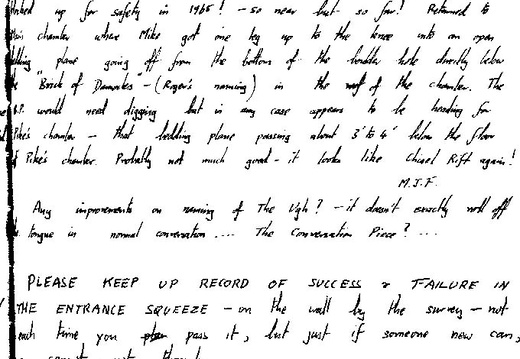 up for safety in 1965! - so near but so far! Returned to
chamber where Mike got one leg up to the knee into an open
plane going off from the bottom of the boulder hole directly below
"Brick of Damocles" - (Roger's naming) in the roof of the chamber. The
B.P. would need digging but in any case appears to be heading for
Pike's chamber - that bedding plane passing about 3' to 4' below the floor
of Pike's chamber. Probably not much good - it looks like Chisel Rift again!
M.J.F.
Any improvements on naming of The Ugh? - it doesn't exactly roll off
tongue in normal conversation .... The Conversation Piece? ...
PLEASE KEEP UP RECORD OF SUCCESS & FAILURE IN
THE ENTRANCE SQUEEZE - on the wall by the survey - not
each time you pass it, but just if someone new can,